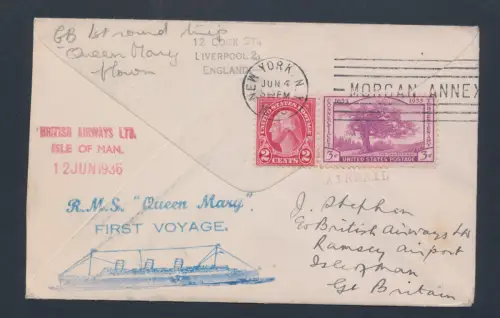 GB 1st round trip
"Queen Mary"
flown
12 COOK ST.,
LIVERPOOL 2,
ENGLAND.
NEW YORK N.Y.
JUN 4
PM
MORGAN ANNEX
UNITED STATES POSTAGE
2 CENTS 2
1635 1935
3¢ UNITED STATES POSTAGE 3¢
AIRMAIL
BRITISH AIRWAYS LTD.
ISLE OF MAN.
12 JUN 1936
R.M.S. "Queen Mary".
FIRST VOYAGE.
J. Stephen
c/o British Airways Ltd
Ramsey Airport
Isle of Man
Gt Britain